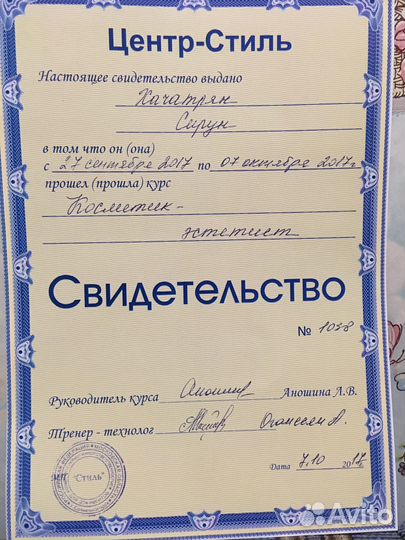 Центр-Стиль
Настоящее свидетельство выдано
Хачатрян
Сирун
в том что он (она)
с 27 сентября 2017 по 07 октября 2017г
прошел (прошла) курс
Косметик-
эстетист
Свидетельство
№ 1058
Руководитель курса Аношина Л.В.
Тренер - технолог Оганесян А.
Дата 7.10 2017г.
МП "Стиль"
Avito